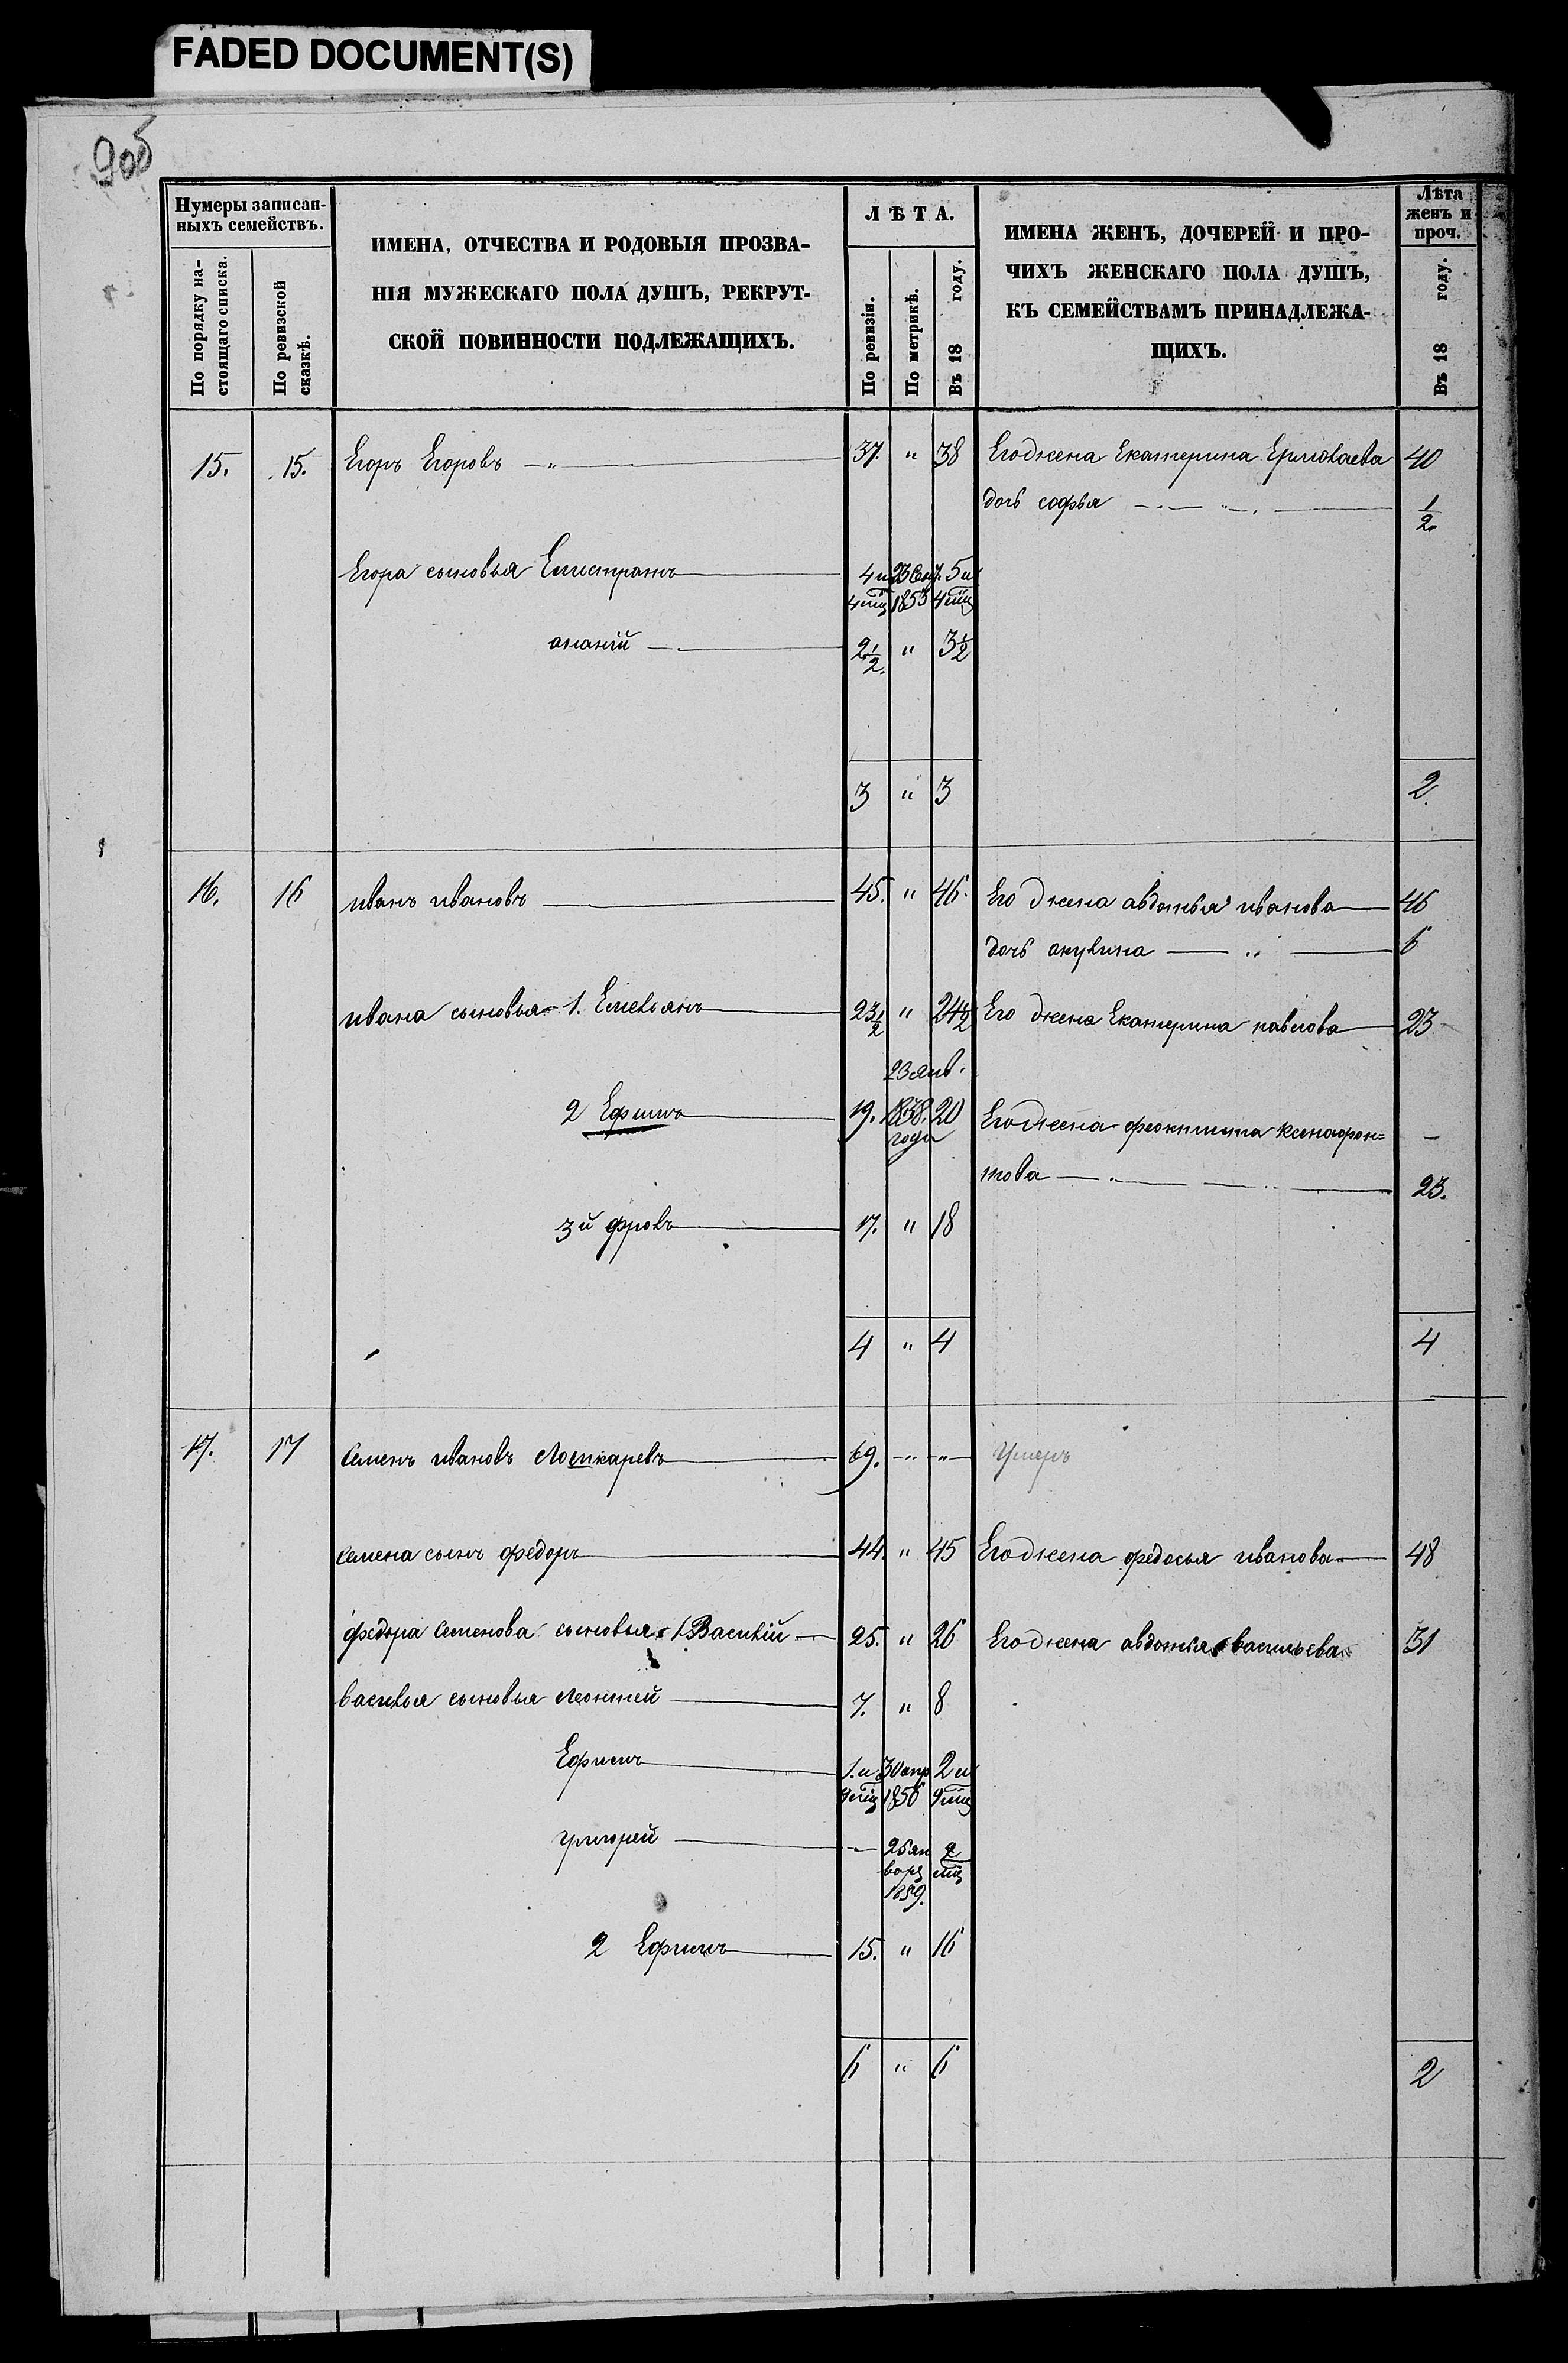 FADED DOCUMENT(S)
905
Нумеры записан-
ныхъ семействъ.
По порядку на-
стоящаго списка.
По ревизской
сказкѣ.
ИМЕНА, ОТЧЕСТВА И РОДОВЫЯ ПРОЗВА-
НІЯ МУЖЕСКАГО ПОЛА ДУШЪ, РЕКРУТ-
СКОЙ ПОВИННОСТИ ПОДЛЕЖАЩИХЪ.
ЛѢТА.
По ревизіи.
По метрикѣ.
Въ 18 году.
ИМЕНА ЖЕНЪ, ДОЧЕРЕЙ И ПРО-
ЧИХЪ ЖЕНСКАГО ПОЛА ДУШЪ,
КЪ СЕМЕЙСТВАМЪ ПРИНАДЛЕЖА-
ЩИХЪ.
Лѣта
женъ и
проч.
Въ 18 году.
15. 15. Егоръ Егоровъ — " — 37. " 38 Его жена Екатерина Ермолаева 40
дочь софья — 1/2.
Егора сыновья Елистратъ — 4 и 23 5 и
4 мц 1853 4 мц
ананій — 2 1/2. " 3 1/2
3 " 3 2.
16. 16 иванъ ивановъ — 45. " 46. Его жена авдотья иванова — 46
дочь акулина — " — 6
ивана сыновья 1. Емельянъ — 23 1/2 " 24 1/2 Его жена Екатерина павлова — 23
23 янв.
2 Ефимъ — 19. 1838. 20 Его жена феоктиста ксенофон= —
года
това — 23.
3й фролъ — 17. " 18
4 " 4 4
17. 17 Семенъ ивановъ Лошкаревъ — 69. — " — " — Умеръ
семена сынъ федоръ — 44. " 45 Его жена федосья иванова — 48
федора семенова сыновья 1 Василій — 25. " 26 Его жена авдотья васильева 31
василья сыновья леонтей — 7. " 8
Ефимъ — 1. и 30 апр 2 и
9 мц 1856 9 мц
григорей — — 25 ян 2
варя мц
1859.
2 Ефимъ — 15. " 16
6 " 6 2